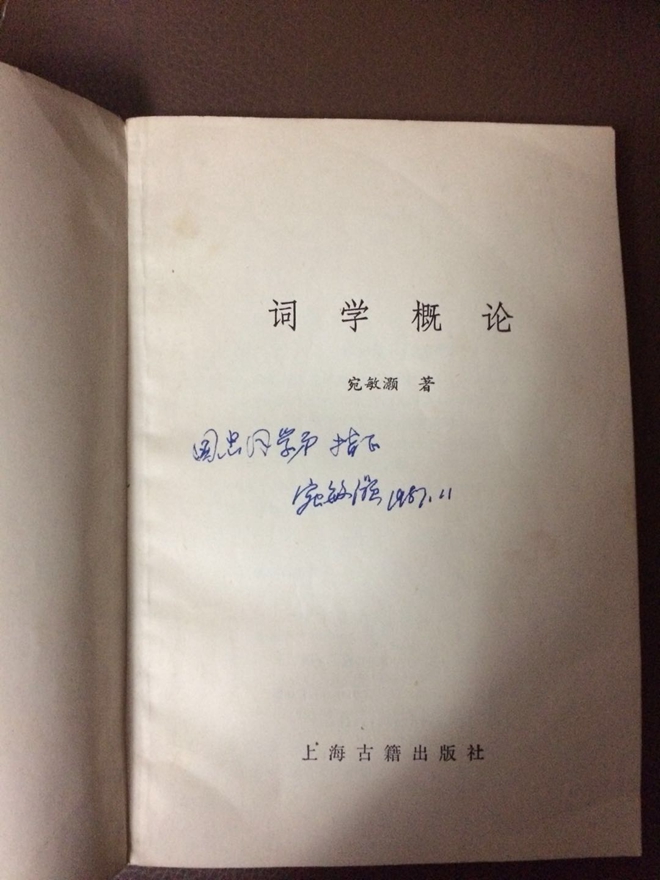 词学概论
宛敏灏 著
国忠同学弟 指正
宛敏灏 1987.11
上海古籍出版社